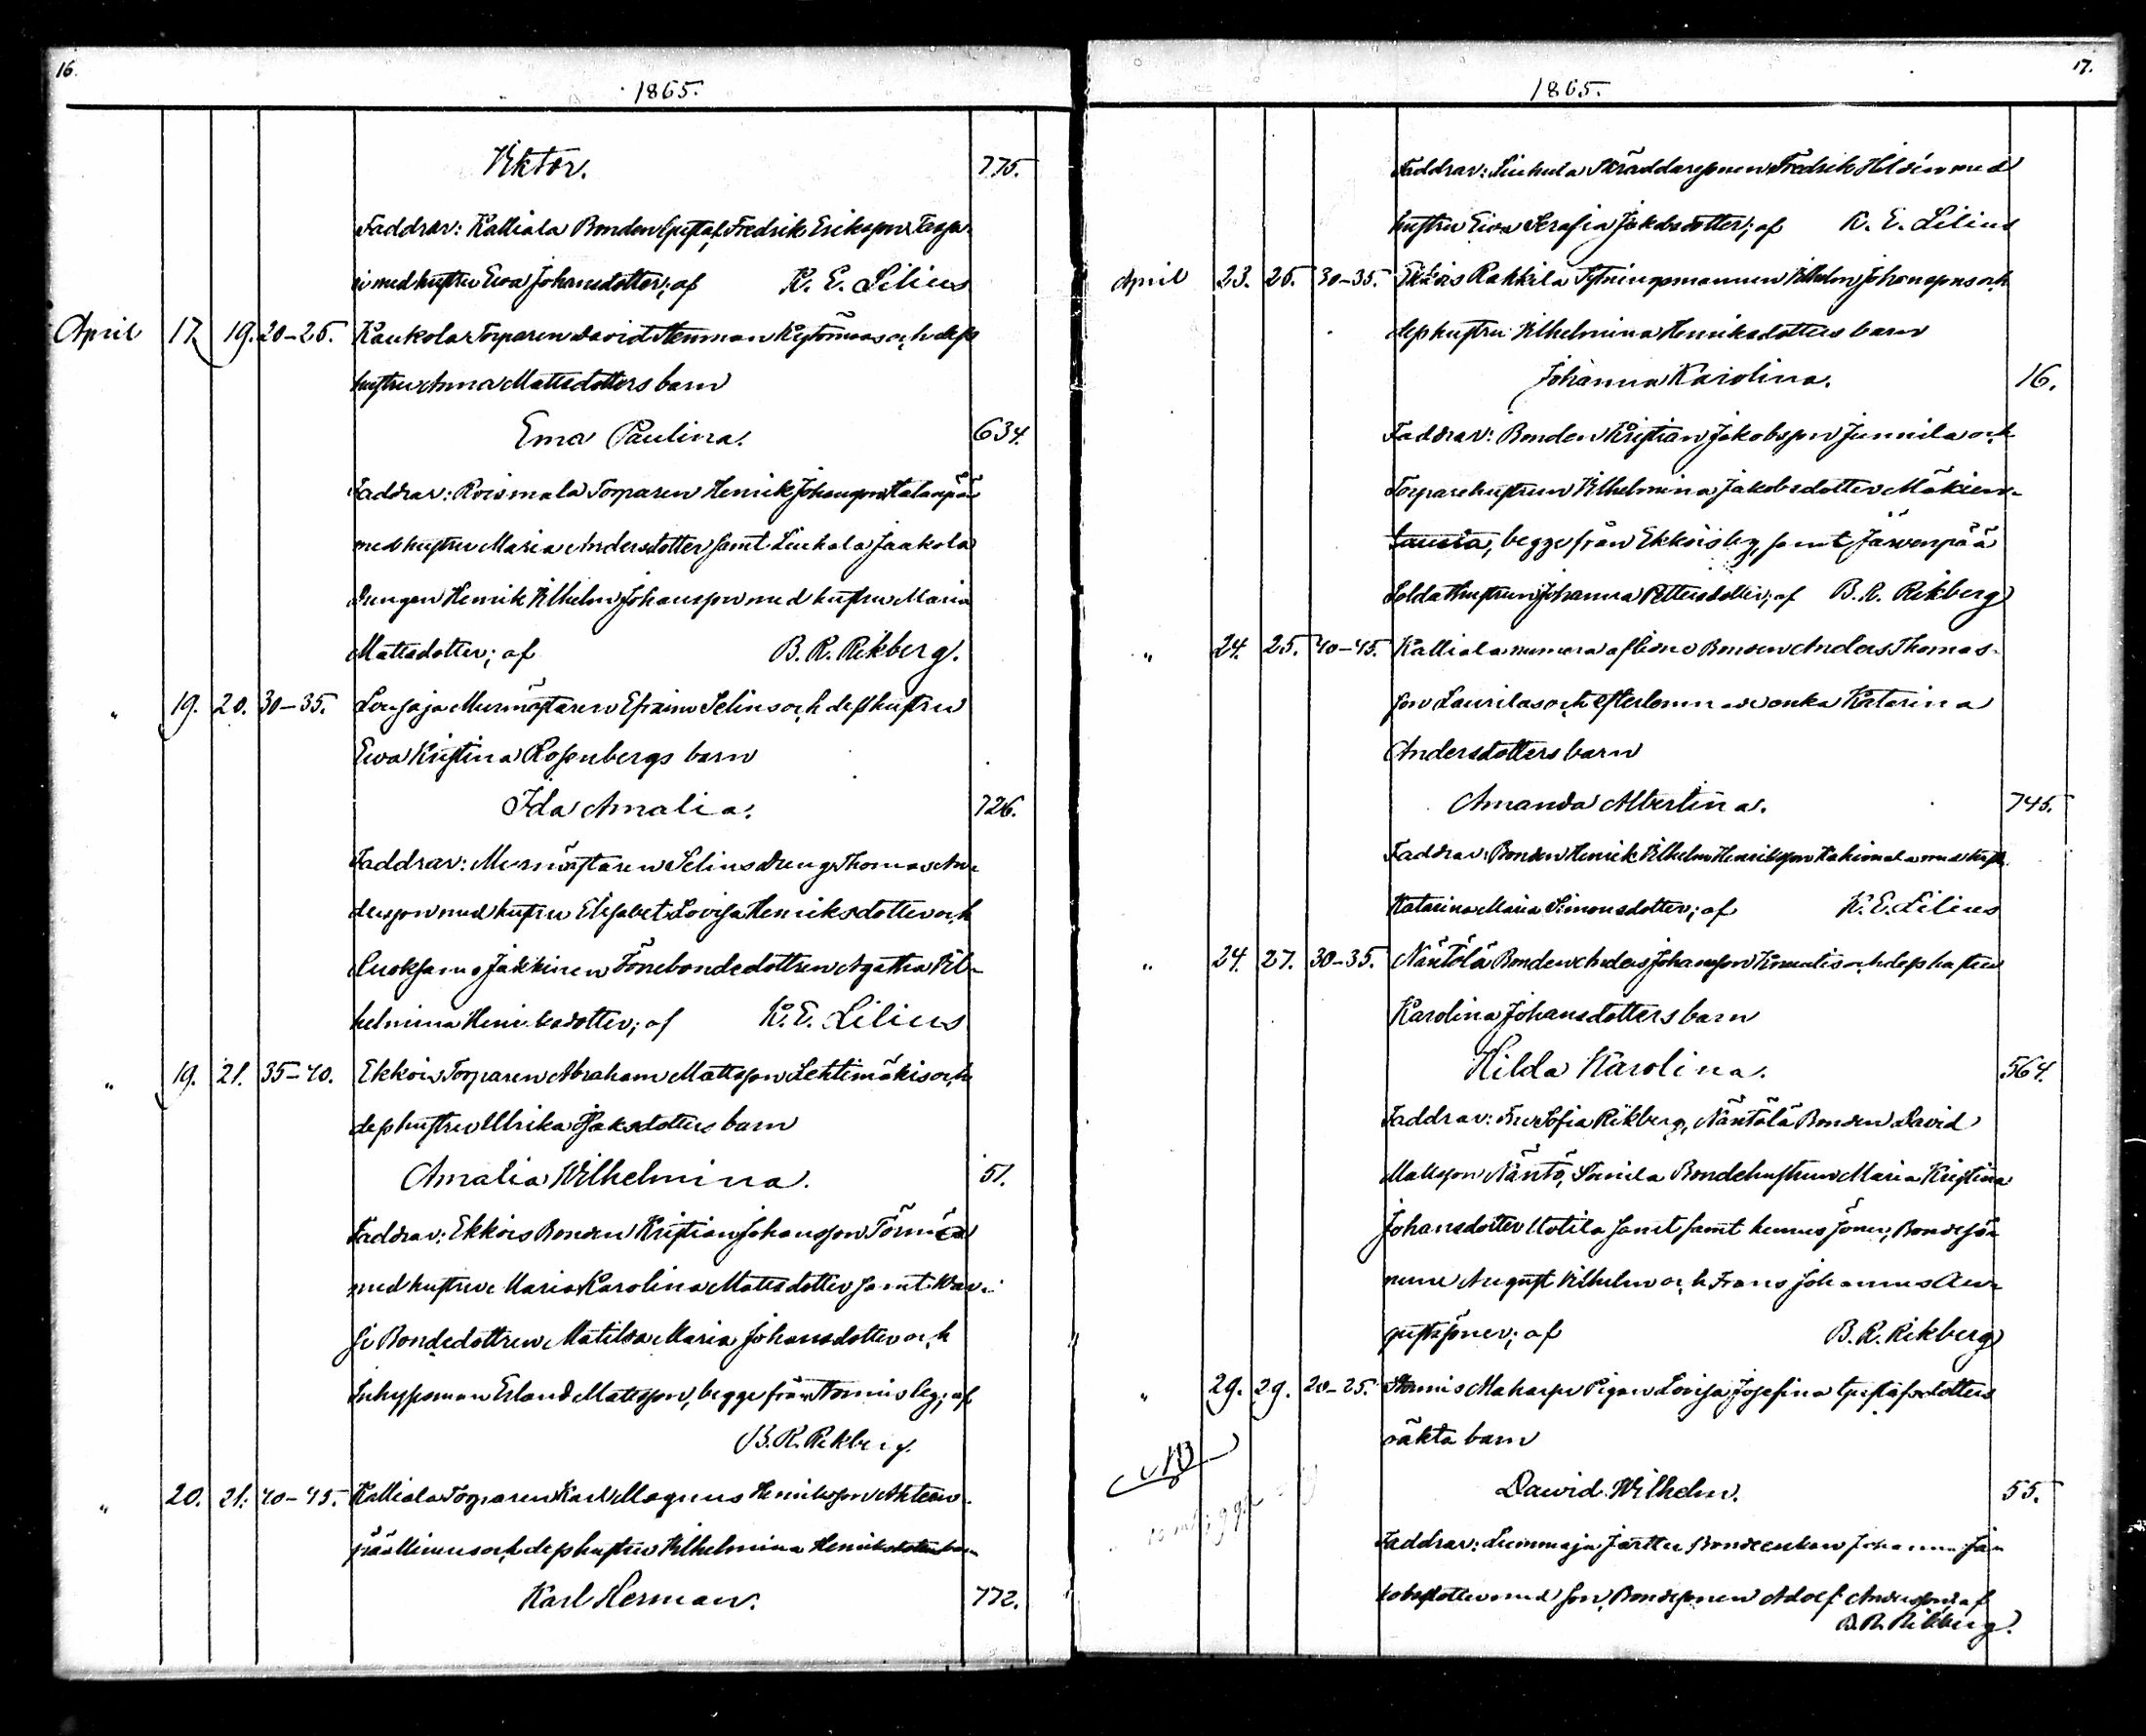 16.
1865.
Viktor. 775.
Faddrar: Kalliala Bonden Gustaf Fredrik Eriksson
med hustru Eva Johansdotter; af K. E. Lilius
April 17. 19. 20–25. Kaukola Torparen David Henman och dess
hustru Anna Mattsdotters barn
Ema Paulina. 634.
Faddrar: Roismala Torparen Henrik Johansson
med hustru Maria Andersdotter samt Liuhala Jaakola
Drengen Henrik Vilhelm Johansson med hustru Maria
Mattsdotter; af B. R. Rikberg.
" 19. 20. 30–35. Murmästaren Efraim Selins och dess hustru
Eva Kristina Rosenbergs barn
Ida Amalia. 726.
Faddrar: Murmästaren Selins dreng Thomas An-
dersson med hustru Elisabet Lovisa Henriksdotter och
Ruoksamo Jaakkinen Bondedottren Agatha Vil-
helmina Henriksdotter; af K. E. Lilius
" 19. 21. 35–40. Ekkois Torparen Abraham Mattsson Lehtimäkis och
dess hustru Ulrika Isaksdotters barn
Amalia Wilhelmina. 51.
Faddrar: Ekkois Bonden Kristian Johansson Törmä
med hustru Maria Karolina Mattsdotter samt
Bondedottren Matilda Maria Johansdotter och
Inhysesman Erland Mattsson, begge från Stormis by; af
B. R. Rikberg.
" 20. 21. 40–45. Kalliala Torparen Karl Magnus Henriksson Ahteen-
päällinens och dess hustru Vilhelmina Henriksdotters barn
Karl Herman. 772.
17.
1865.
Faddrar: Liuhala Skräddaresonen Fredrik Hildén med
hustru Eva Serafia Jakobsdotter; af K. E. Lilius
April 23. 25. 30–35. Ekkois Rakkila Sytningsmannen Vilhelm Johanssons och
dess hustru Vilhelmina Henriksdotters barn
Johanna Karolina. 16.
Faddrar: Bonden Kristian Jakobsson Junnila och
Torparehustrun Vilhelmina Jakobsdotter Mäkien-
begge från Ekkois by, samt Järvenpää
Soldathustrun Johanna Pettersdotter; af B. R. Rikberg
" 24. 25. 40–45. Kalliala numera aflidne Bonden Anders Thomas-
son Laurilas och efterlemnade enka Katarina
Andersdotters barn
Amanda Albertina. 745.
Faddrar: Bonden Henrik Vilhelm Henriksson Kakimala med hustr.
Katarina Maria Simonsdotter; af K. E. Lilius
" 24. 27. 30–35. Näntölä Bonden Anders Johansson och dess hustru
Karolina Johansdotters barn
Hilda Karolina. 564.
Faddrar: Fru Sofia Rikberg, Näntölä Bonden David
Mattsson Näntö, Bondehustrun Maria Kristina
Johansdotter Uotila samt samt hennes söner, Bondesö-
nerne August Vilhelm och Frans Johannes Au-
gustssöner; af B. R. Rikberg
" 29. 29. 20–25. Stormis Maharpe Pigan Lovisa Josefina Gustafsdotters
oäkta barn
NB
David Wilhelm. 55.
Faddrar: Liemmaja Bondeenkan Johanna Ja-
kobsdotter med son, Bondesonen Adolf Andersson; af
B. R. Rikberg.